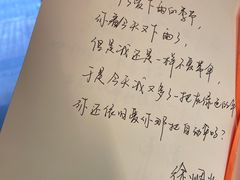 不该下雨的季节，
你看今天又下雨了，
但是我还是一样不爱带伞，
于是今天我又多了一把灰绿色的伞
你还依旧爱你那把自动伞吗？
徐